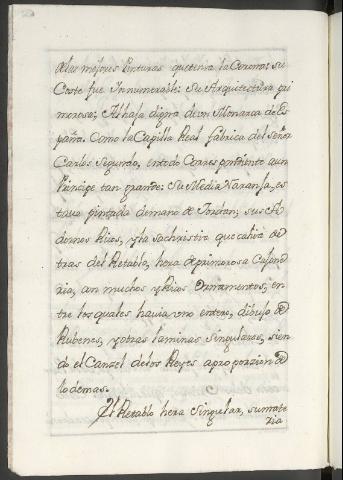 de las mejores Pinturas que tenia la Corona: su
Coste fue Innumerable: Su Arquitectura pri
morosa; Alhaja digna de un Monarca de Es
paña. Como la Capilla Real fabrica del señor
Carlos Segundo, entodo Correspondiente aun
Principe tan grande: Su Media Naranja, es
taua pintada de mano de Jordan; sus A
dornos Ricos, y la Sachristia que cahia de
tras del Retablo, hera de primorosa Cajone
ria, con muchos y Ricos Ornamentos, en
tre los quales hauia uno entero, dibujo de
Rubenes, y otras laminas singulares, sien
do el Cancel de los Reyes aproporzion de
lo demas.
El Retablo hera Singular, su mate
ria